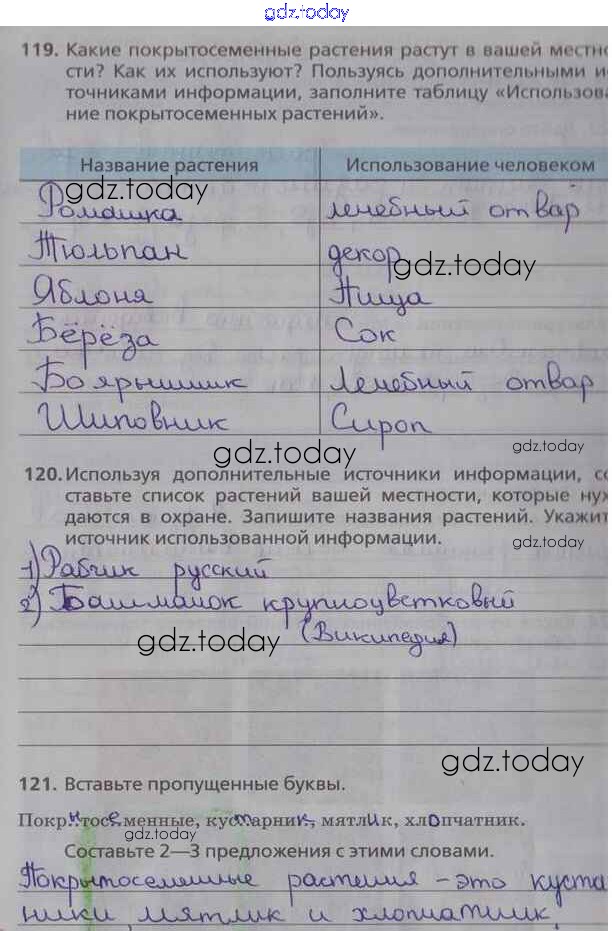 gdz.today
119. Какие покрытосеменные растения растут в вашей местно
сти? Как их используют? Пользуясь дополнительными и
точниками информации, заполните таблицу «Использова
ние покрытосеменных растений».
Название растения Использование человеком
gdz.today
Ромашка лечебный отвар
Тюльпан декор
gdz.today
Яблоня Пища
Берёза Сок
Боярышник Лечебный отвар
Шиповник Сироп
gdz.today gdz.today
120. Используя дополнительные источники информации, со
ставьте список растений вашей местности, которые нуж
даются в охране. Запишите названия растений. Укажит
источник использованной информации.
gdz.today
1) Рабчик русский
2) Башмачок крупноцветковый
(Википедия)
gdz.today
gdz.today
121. Вставьте пропущенные буквы.
Покрытосеменные, кустарник, мятлик, хлопчатник.
gdz.today
Составьте 2—3 предложения с этими словами.
Покрытосеменные растения – это куста
ники, мятлик и хлопчатник.